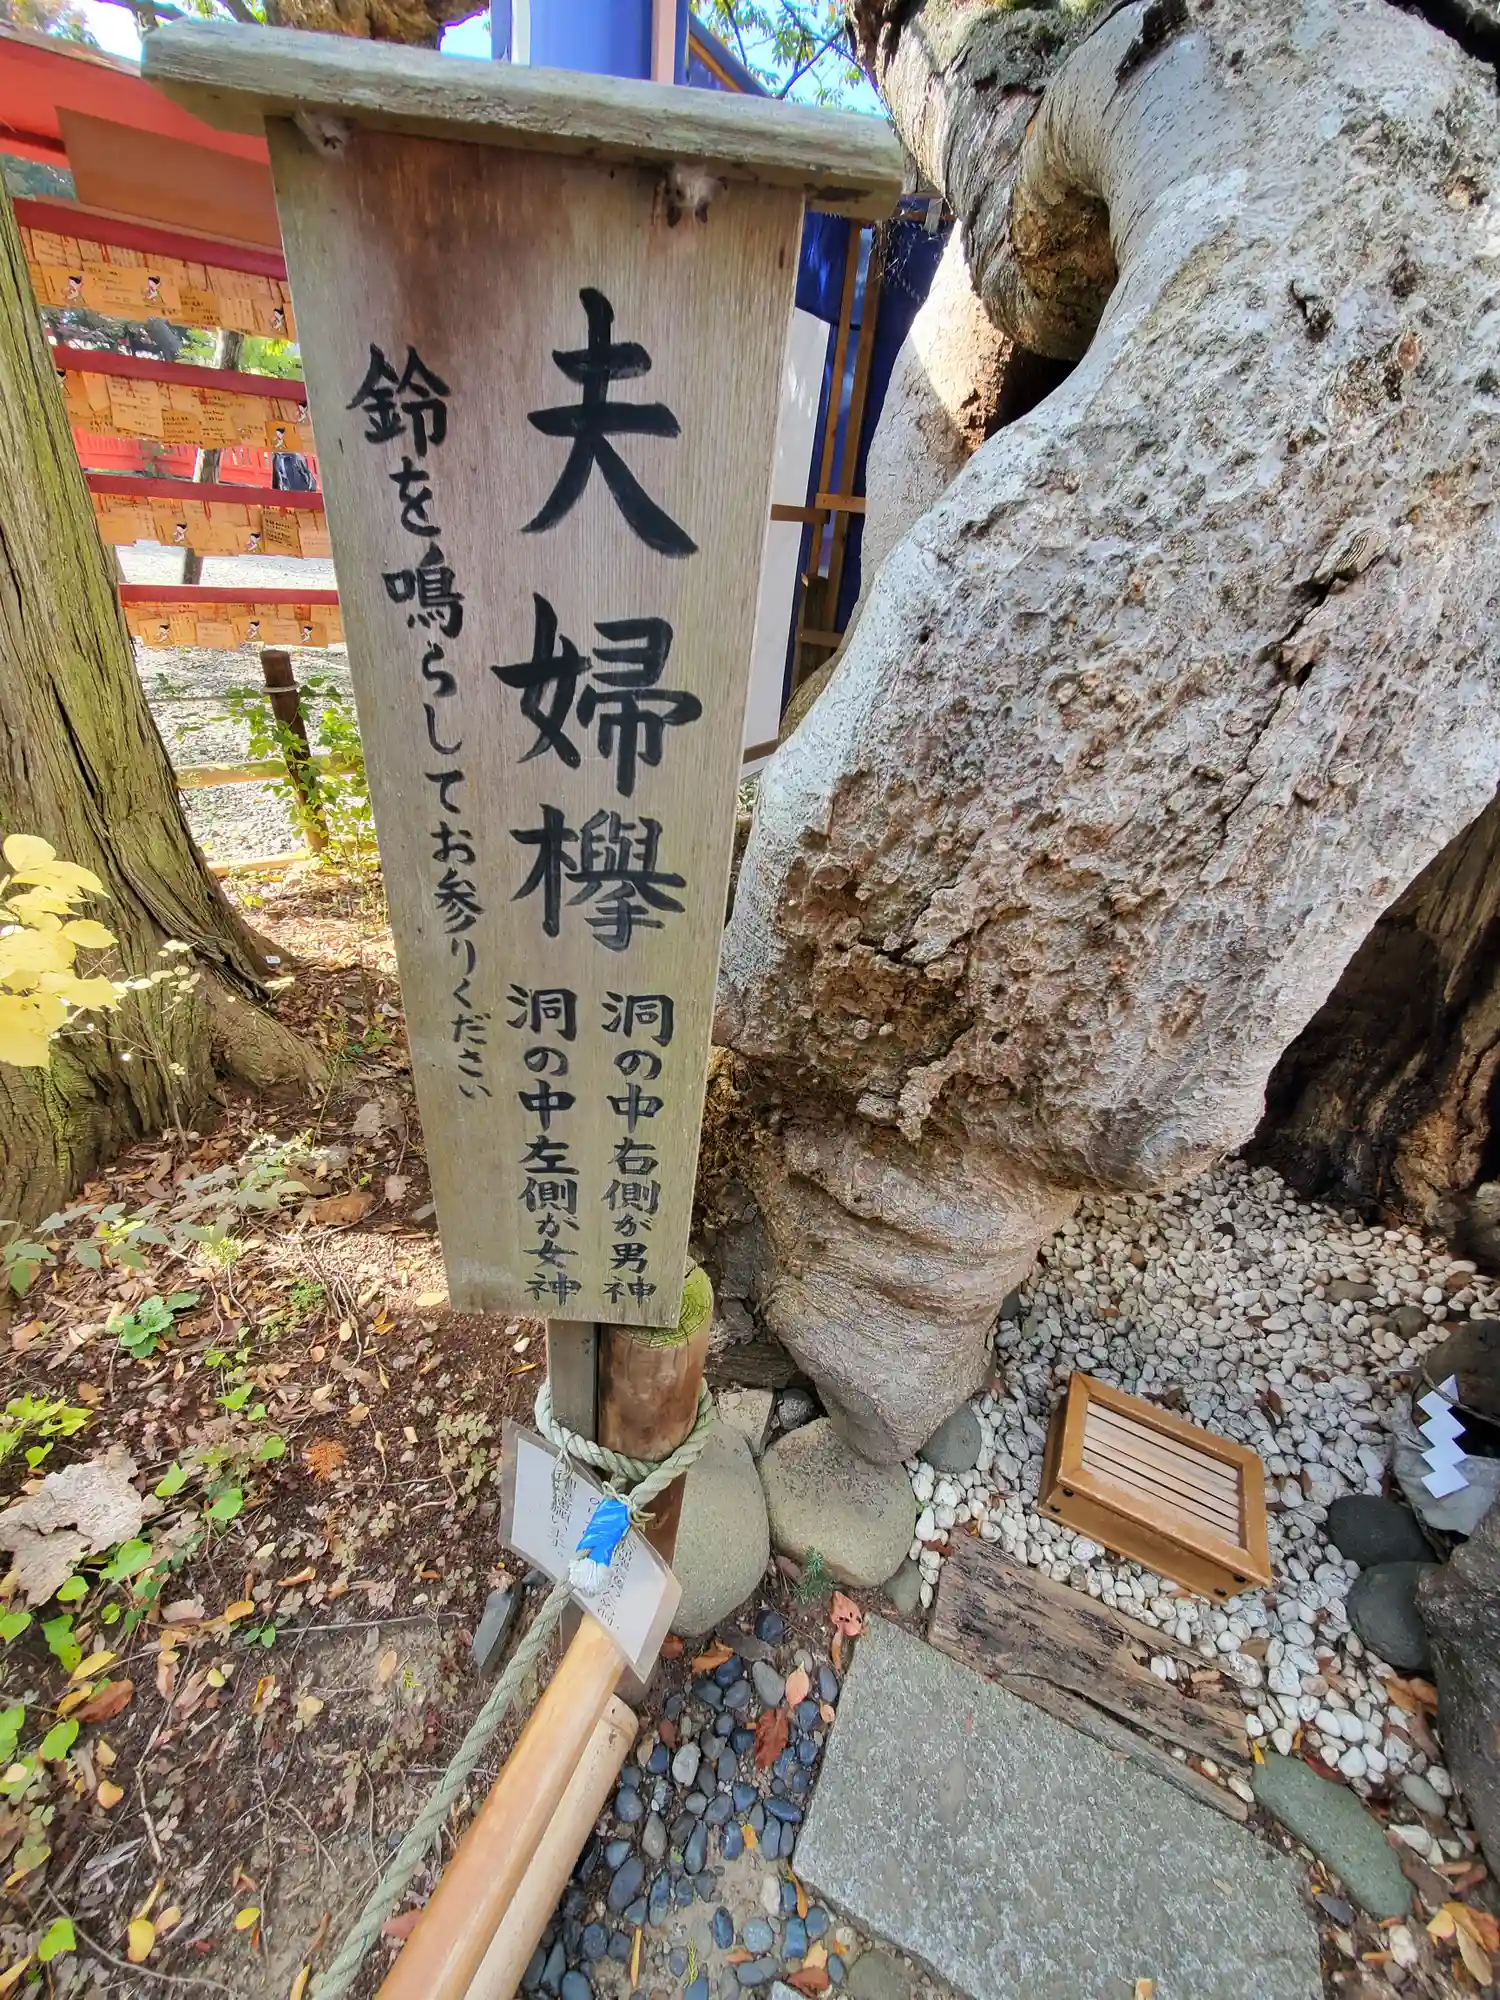 夫婦欅
洞の中右側が男神
洞の中左側が女神
鈴を鳴らしてお参りください